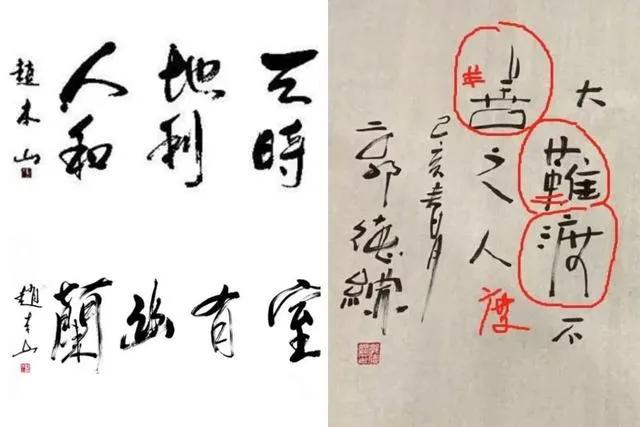 天時
地利
人和
趙本山
室有幽蘭
趙本山
大難渡不
善之人
度
己亥春月
郭德綱